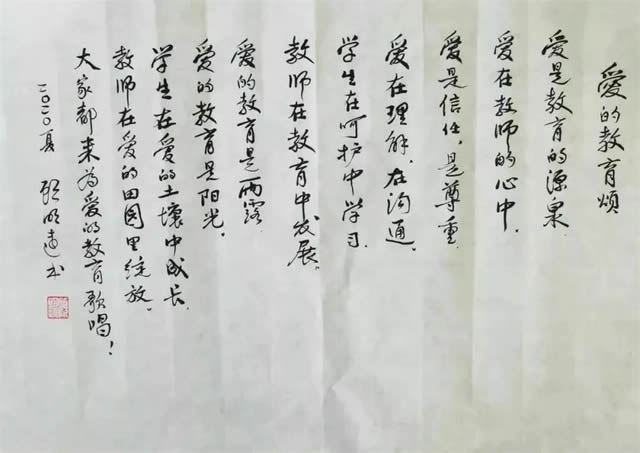 爱的教育颂
爱是教育的源泉
爱在教师的心中.
爱是信任.是尊重.
爱在理解.在沟通.
学生在呵护中学习.
教师在教育中发展.
爱的教育是雨露
爱的教育是阳光.
学生在爱的土壤中成长.
教师在爱的田园里绽放.
大家都来为爱的教育歌唱!
二〇二〇夏 顾明远书